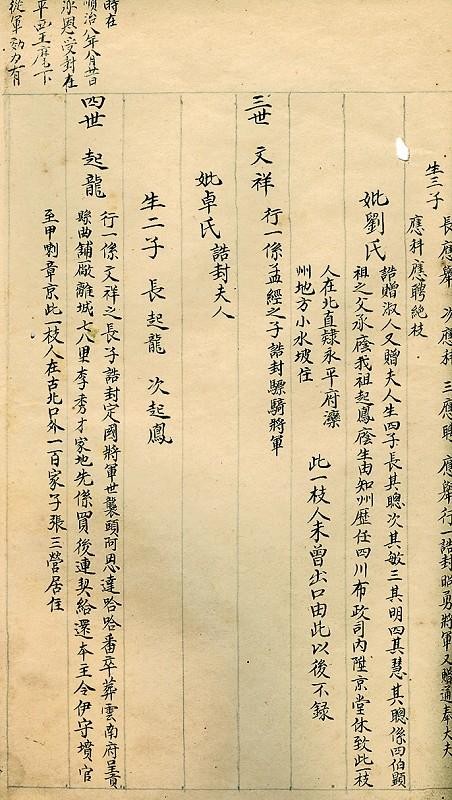 時在
順治八年八月昔
承恩受封在
平西王麾下
從軍効力有
生三子 長應舉 次應科 三應聘 應舉行一誥封昭勇將軍又贈通奉大夫
應科應聘絶枝
妣劉氏 誥贈淑人又贈夫人生四子長其聰次其敏三其明四其慧其聰係四伯顯
祖之父承廕我祖起鳳廕生由知州歷任四川布政司內陞京堂休致此一枝
人在北直隸永平府灤
州地方小水坡住
此一枝人未曾出口由此以後不録
三世 文祥 行一係孟經之子誥封驃騎將軍
妣卓氏 誥封夫人
生二子 長起龍 次起鳳
四世 起龍 行一係文祥之長子誥封定國將軍世襲頭阿思達哈哈番卒葬雲南府呈貢
縣曲舖廠離城七八里李秀才家地先係買後連契給還本主令伊守墳官
至甲喇章京此一枝人在古北口外一百家子張三營居住